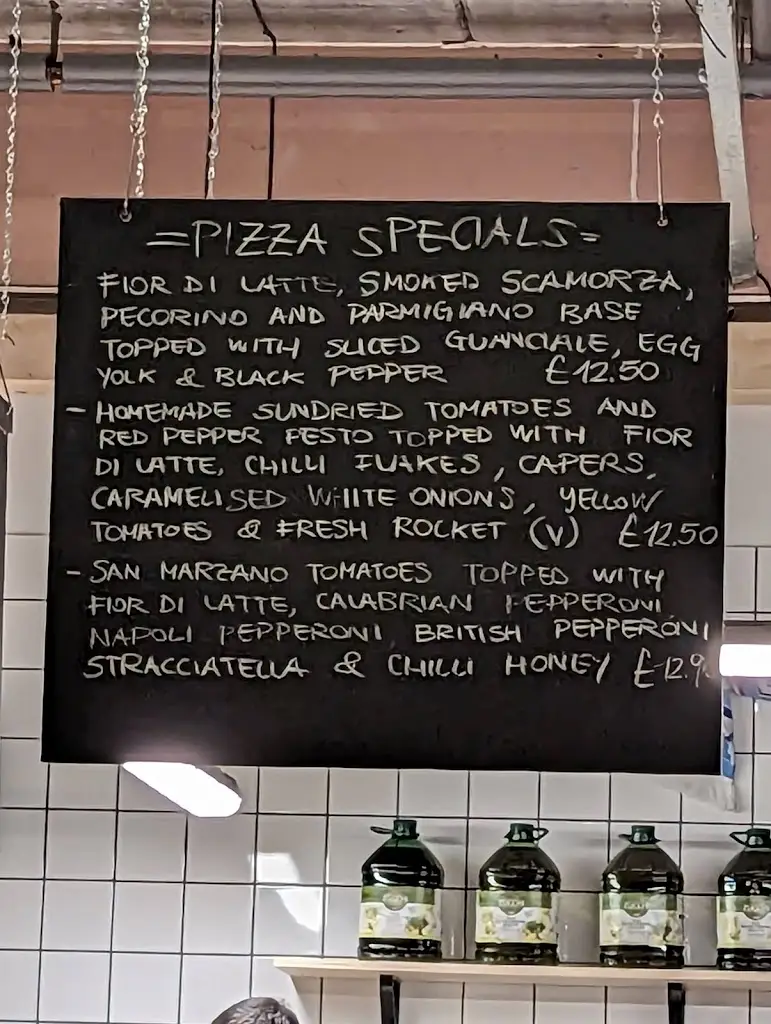 =PIZZA SPECIALS=
FIOR DI LATTE, SMOKED SCAMORZA,
PECORINO AND PARMIGIANO BASE
TOPPED WITH SLICED GUANCIALE, EGG
YOLK & BLACK PEPPER £12.50
- HOMEMADE SUNDRIED TOMATOES AND
RED PEPPER PESTO TOPPED WITH FIOR
DI LATTE, CHILLI FLAKES, CAPERS,
CARAMELISED WHITE ONIONS, YELLOW
TOMATOES & FRESH ROCKET (V) £12.50
- SAN MARZANO TOMATOES TOPPED WITH
FIOR DI LATTE, CALABRIAN PEPPERONI
NAPOLI PEPPERONI, BRITISH PEPPERONI
STRACCIATELLA & CHILLI HONEY